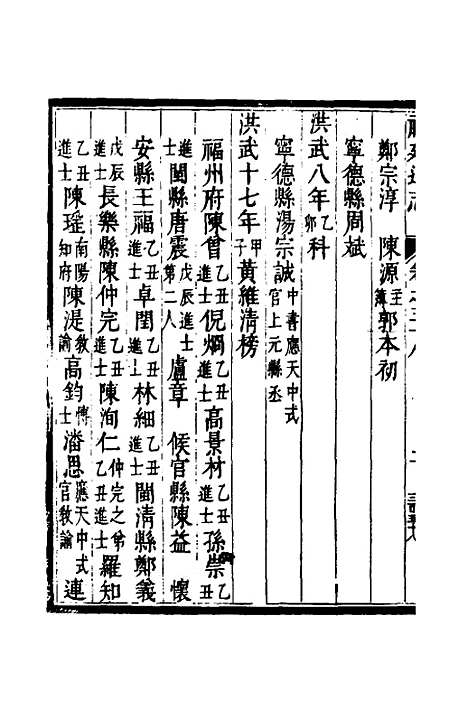 鄭宗淳　陳源主簿郭本初
寧德縣周斌
洪武八年乙卯科
寧德縣湯宗誠中書應天中式官上元縣丞
洪武十七年甲子黃維清榜
福州府陳曾乙丑進士倪烱乙丑高景材乙丑進士孫崇乙丑
進士閩縣唐震戊辰進士第二人盧章　候官縣陳益　懷
安縣王福乙丑進士卓閏乙丑進士林細乙丑進士閩清縣鄭義
戊辰進士長樂縣陳仲完乙丑進士陳洵仁仲完之弟乙丑進士羅知
乙丑進士陳瑶南陽知府陳湜教諭高鈞博士潘思應天中式官教諭連